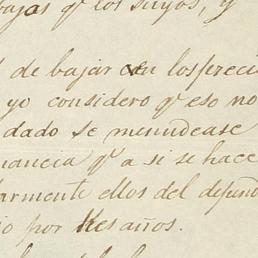 bajas qe los suyos, y
de bajar en los preci
yo considero qe eso no
dado se menudease
nancia qe a si se hace
armente ellos del defun
io por tres años.